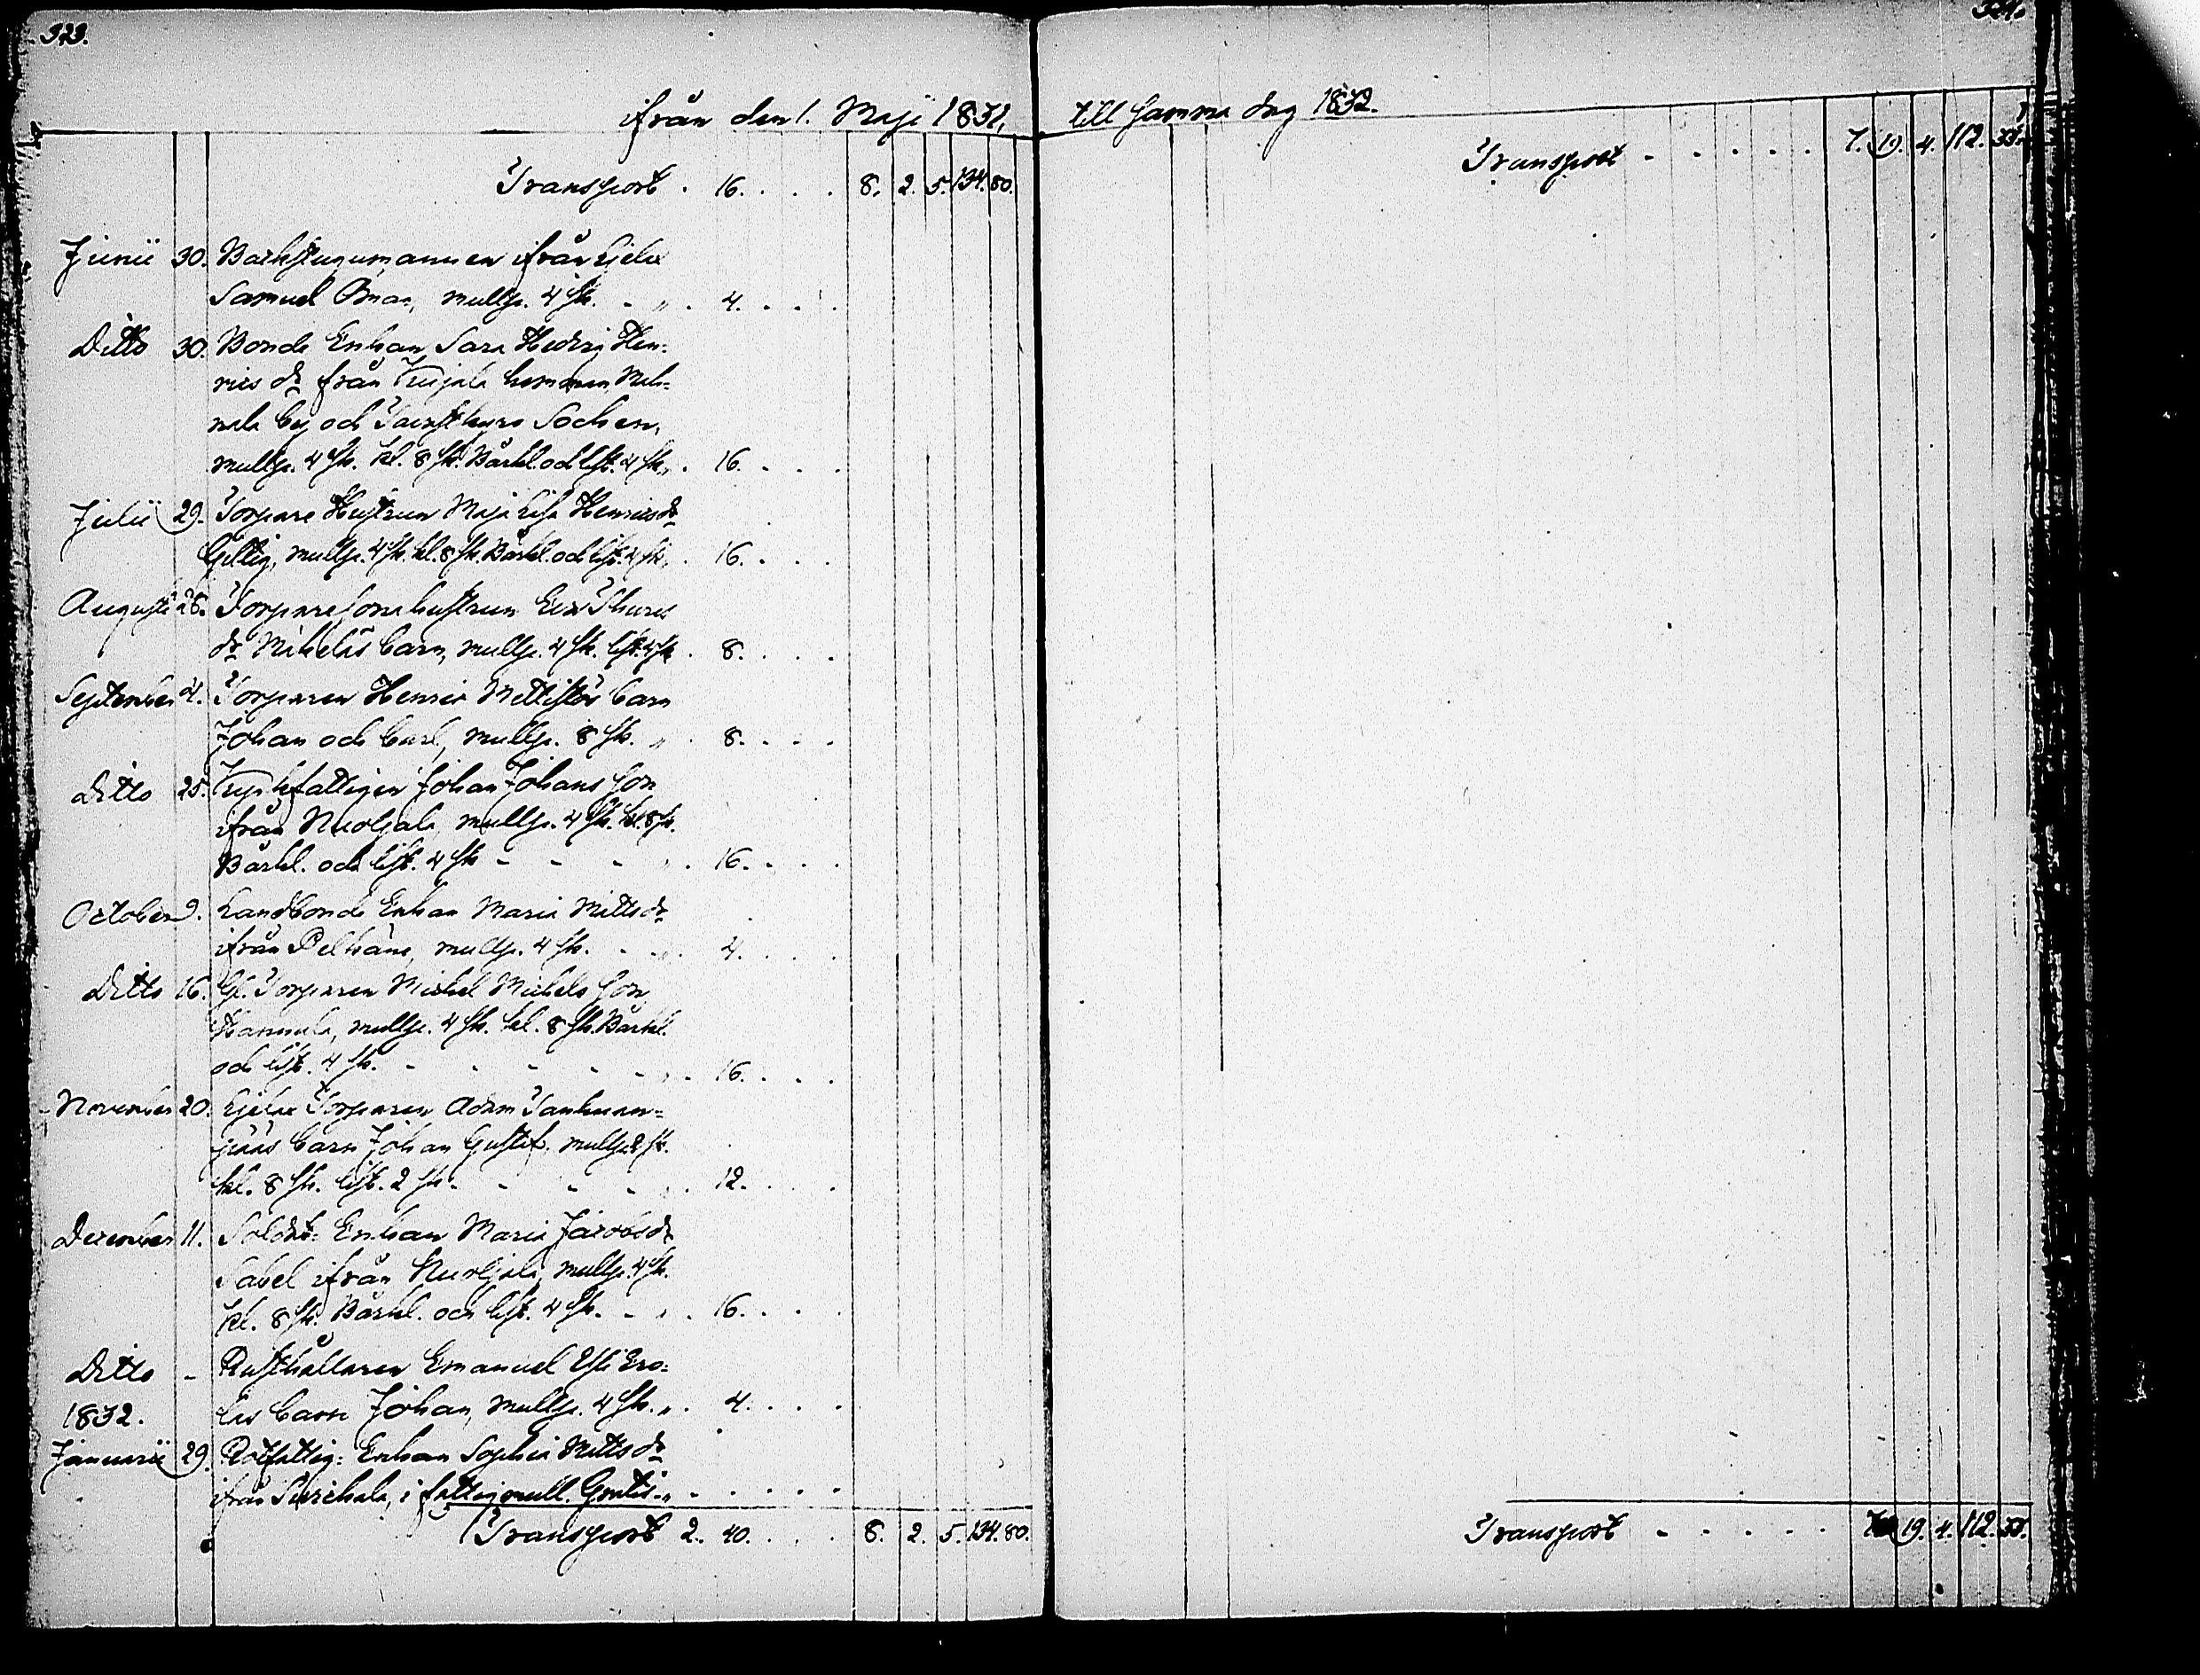 323.
ifrån den 1. Maji 1831,
Transport . 16. . . . 8. 2. 5. 134. 80.
Junii 30. Backstugumannen ifrån Kjela
Samuel Öman, mullp. 4 sk. - " . 4. . . .
Ditto 30. Bonde Enkan Sara Hedvig Hen-
rics dr från Kujala hemman
by och Sochen,
mullp. 4 sk. kl. 8 sk. Bårkl. och likt. 4 sk. . 16. . . .
Julii 29. Torpare Hustrun Maja Lisa Henricsdr
mullp. 4 sk. kl. 8 sk. Bårkl. och likt. 4 sk. . 16. . . .
Augusti 28. Torpare sona hustrun Eva Thures
dr Mikelås barn, mullp. 4 sk. likt. 4 sk . 8. . . .
September 4. Torparen Henric Mattissös barn
Johan och Carl, mullp. 8 sk. " . 8. . . .
Ditto 25. Johan Johans son
ifrån Nuoljala, mullp. 4 sk. kl. 8 sk.
Bårkl. och likt. 4 sk - - - . 16. . . .
October 9. Landbonde Enkan Maria Mattsdr
ifrån Pelkäne, mullp. 4 sk. - . 4. . . .
Ditto 16. Gl. Torparen Michel Michels son
Hannula, mullp. 4 sk. kl. 8 sk. Bårkl.
och likt. 4 sk. - - - - - . 16. . . .
November 20. Kjela Torparen Adam
barn Johan Gustaf. mullp. 2 sk.
kl. 8 sk. likt. 2 sk. - - - . 12. . . .
December 11. Soldat- Enkan Maria Jacobsdr
Sabel ifrån Nuoljala, mullp. 4 sk.
kl. 8 sk. Bårkl. och likt. 4 sk. - . 16. . . .
Ditto - Rusthållaren Emanuel Esi Ero-
1832. las barn Johan, mullp. 4 sk. " . 4. . . .
Januarii 29. Rotfattig- Enkan Sophia Mattsdr
ifrån i fattigmull. Gratis " - . . . .
Transport 2. 40. . . . 8. 2. 5. 134. 80.
324.
till samma dag 1832.
Transport - - - - - - 7. 19. 4. 112. 33.
Transport - - - - - - 19. 4. 112. 33.